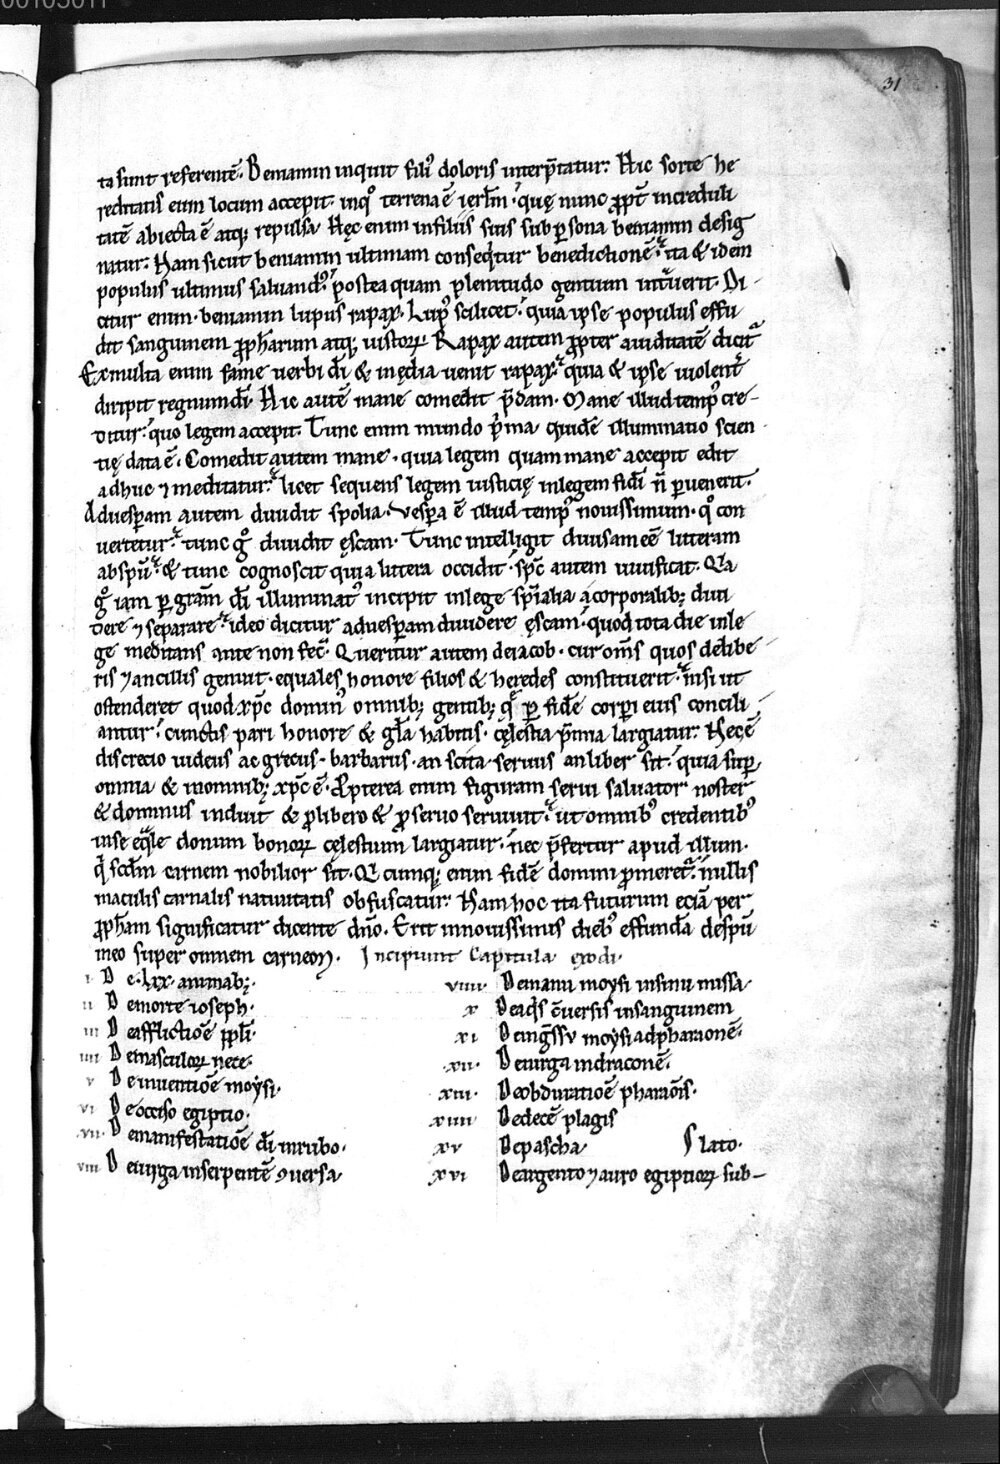 31
ta sunt referentē. Beniamin inquit fili᷒ doloris interp̄tatur. Hic sorte he
reditatis eum locum accepit. in qͦ terrena ē ierłm. quę nunc ꝓpt̄ increduli
tatē abiecta ē atq; repulsa. Hęc enim in filiis suis sub ꝑsona beniamin desig
natur. Nam sicut beniamin ultimam conseqͥtur benedictionē. ita & idem
populus ultimus saluand᷒. postea quam plenitudo gentium intͣuerit. Di
citur enim. beniamin lupus rapax. Lup᷒ scilicet. quia ipse populus effu
dit sanguinem ꝓph̄arum atq; iustoꝝ. Rapax autem ꝓpter auiditatē dicitͬ
Ex multa enim fame uerbi dī & inędia uenit rapax. quia & ipse uiolent᷒
diripit regnum dī. Hic autē mane comedit p̄dam. Mane illud temp᷒ cre-
ditur. quo legem accepit. Tunc enim mundo pͥma quidē illuminatio scien
tię data ē. Comedit autem mane. quia legem quam mane accepit edit
adhuc ⁊ meditatur. licet sequens legem iusticię in legem fidī n̄ ꝑuenerit.
Ad uesꝑam autem diuidit spolia. Vesꝑa ē illud temp᷒ nouissimum. qͦ con
uertetur. tunc gͦ diuidit ęscam. Tunc intelligit diuisam eē litteram
ab spū. & tunc cognoscit quia littera occidit. sp̄c autem uiuificat. Qͥa
gͦ iam ꝑ grām dī illuminat᷒ incipit in lege sp̄ialia a corporalib; diui
dere ⁊ separare. ideo dicitur ad uesꝑam diuidere ęscam. quod tota die in le
ge meditans ante non fec̄. Queritur autem de iacob. cur om̄s quos de libe
ris ⁊ ancillis genuit. equales honore filios & heredes constituerit. nisi ut
ostenderet quod xp̄c domin᷒ omnib; gentib; q̄ ꝑ fidē corpͥ eius concili
antur. cunctis pari honore & gl̄a habitis. cęlestia p̄mia largiatur. Nec ē
discretio iudeus ac grecus. barbarus. an scita. seruus an liber sit. quia suꝑ
omnia & in omnib; xp̄c ē. Ꝓpterea enim figuram serui saluator noster
& dominus induit & ꝓ libero & ꝓ seruo seruiuit. ut omnib᷒ credentib᷒
in se eqͣle donum bonoꝝ cęlestium largiatur. nec p̄fertur apud illum.
qͥ scd̄m carnem nobilior sit. Qͥcunq; enim fidē domini ꝓmeretͬ. nullis
maculis carnalis natiuitatis obfuscatur. Nam hoc ita futurum eciā per
ꝓph̄am significatur dicente dn̄o. Erit in nouissimis dieb᷒ effundā de spū
meo super omnem carnem. Incipiunt Capitula exodi.
i De. lxx. animab;.
ii De morte ioseph.
iii De afflictiōe ppłi.
iiii De masculoꝝ nece.
v De inuentiōe moysi.
vi De occiso egiptio.
vii. De manifestatiōe dī in rubo.
viii De uirga in serpentē ꝯuersa
viiii. De manu moysi in sinu missa.
x De aqͥs c̄uersis in sanguinem
xi De ingͤssu moysi ad pharaonē.
xii. De uirga in draconē.
xiii. De obduratiōe pharaōis.
xiiii De decē plagis
xv De pascha lato.
xvi De argento ⁊ auro egiptioꝝ sub-